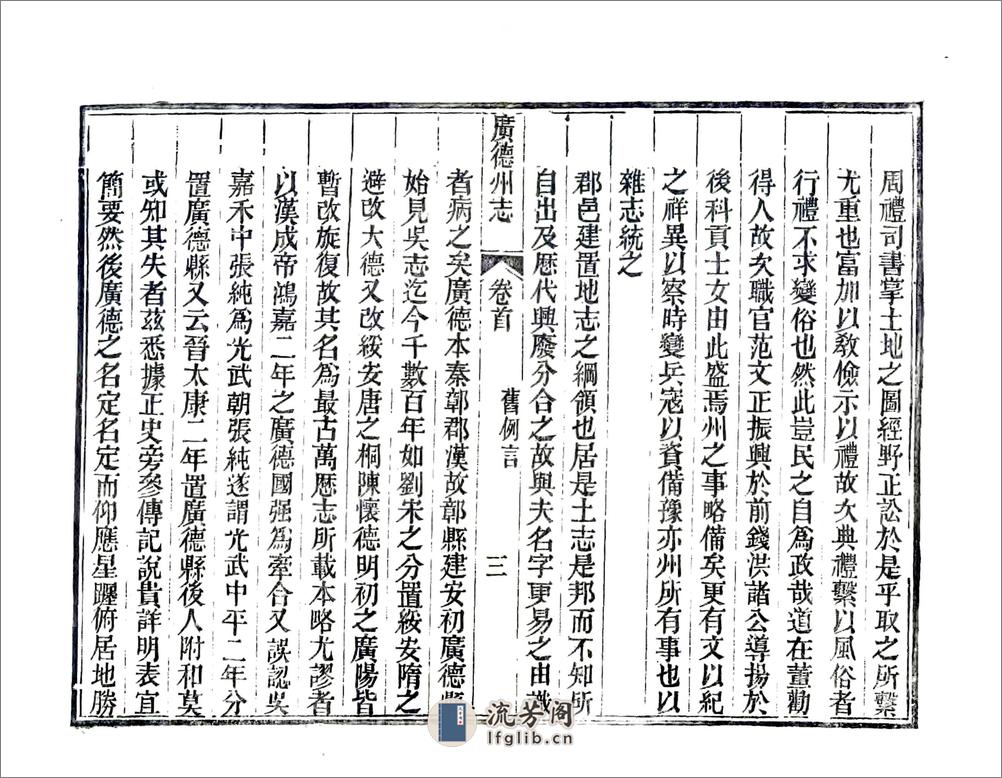 周禮司書掌土地之圖經野正訟於是乎取之所繫
尤重也富加以敎儉示以禮故次典禮繫以風俗者
行禮不求變俗也然此豈民之自為政哉道在董勸
得人故次職官范文正振興於前錢洪諸公導揚於
後科貢士女由此盛焉州之事略備矣更有文以紀
之祥異以察時變兵寇以資備豫亦州所有事也以
雜志統之
郡邑建置地志之綱領也居是土志是邦而不知所
自出及歷代興廢分合之故與夫名字更易之由識
廣德州志 卷首 舊例言 三
者病之矣廣德本秦鄣郡漢故鄣縣建安初廣德縣
始見吳志迄今千數百年如劉宋之分置綏安隋之
避改大德又改綏安唐之桐陳懷德明初之廣陽皆
暫改旋復故其名為最古萬歷志所載本略尤謬者
以漢成帝鴻嘉二年之廣德國强為牽合又誤認吳
嘉禾中張純為光武朝張純遂謂光武中平二年分
置廣德縣又云晉太康二年置廣德縣後人附和莫
或知其失者茲悉據正史旁參傳記說貴詳明表宜
簡要然後廣德之名定名定而仰應星躔俯居地勝
流芳閣
lfglib.cn